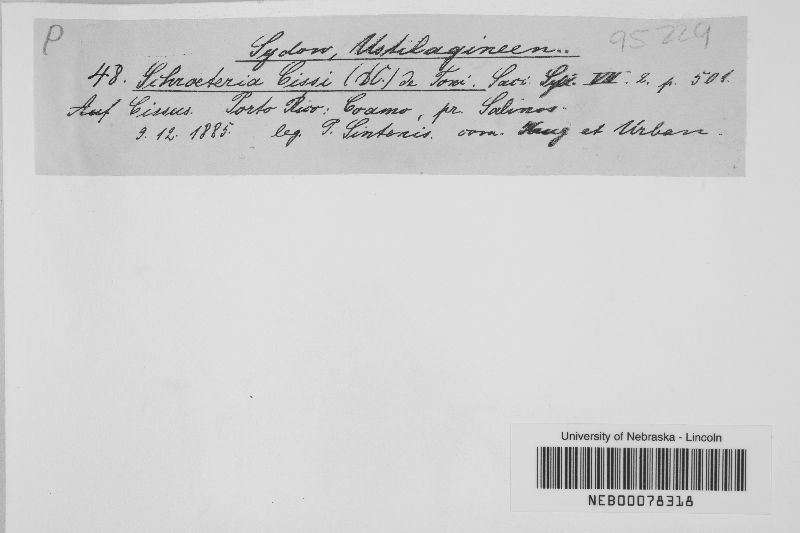 P
95229
Sydow, Ustilagineen.
48. Schroeteria Cissi (DC.) de Toni. Sacc. Syll. VII. 2. p. 501.
Auf Cissus. Porto Rico: Coamo, pr. Salinas.
9. 12. 1885. leg. P. Sintenis. com. Krug et Urban.
University of Nebraska - Lincoln
NEB00078318